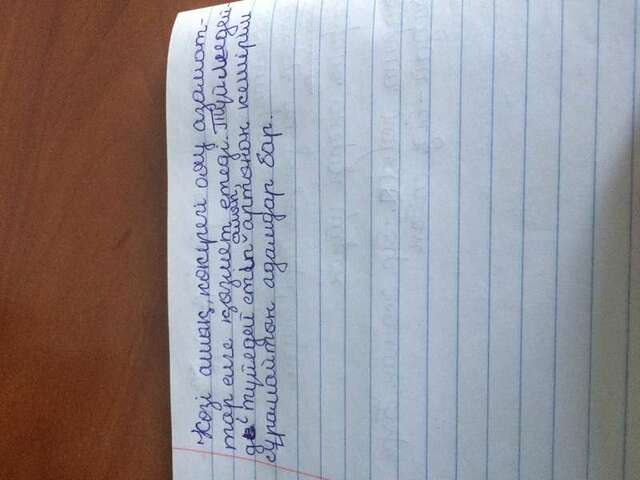 Көзі ашық, көкірегі ояу азамат-
тар елге қызмет етеді. Түймедей-
ді түйедей етіп алып, артынан кешірім
сұрамайтын адамдар бар.